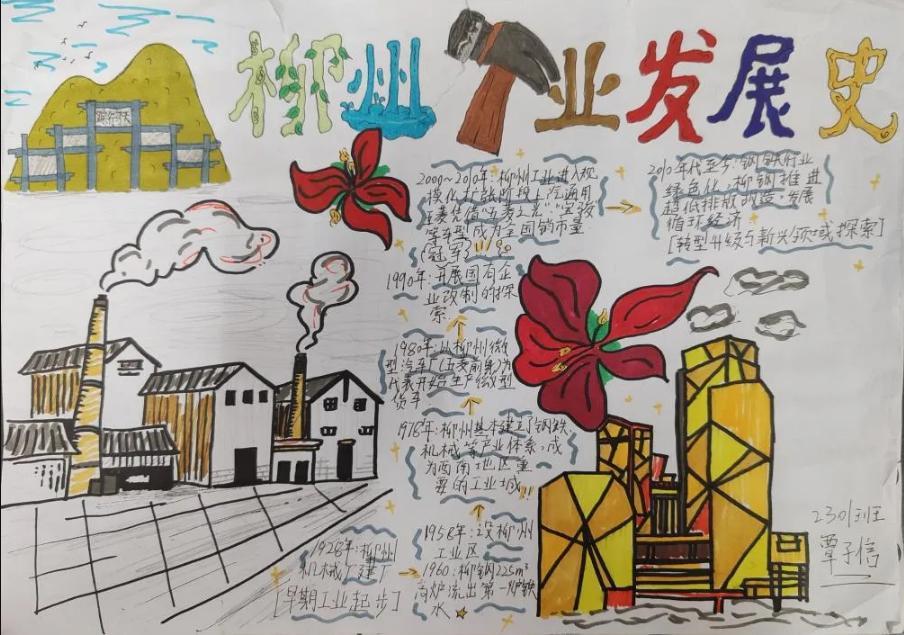 柳州工业发展史
2000~2010年:柳州工业进入规
模化扩张阶段,上汽通用
五菱凭借"五菱之光""宝骏"
等车型,成为全国销量
(冠军)!!!
2010年代至今:钢铁行业
绿色化,柳钢推进
超低排版改造,发展
循环经济
[转型升级与新兴领域探索]
1990年:开展国有企
业改制的探
索
1980年:以柳州微
型汽车厂(五菱前身)为
代表开始生产微型
货车
1978年:柳州基本建立了钢铁、
机械等产业体系,成
为西南地区重
要的工业城!!
1958年:设柳州
工业区
1960:柳钢225m³
高炉流出第一炉铁
水
1928年:柳州
机械厂建厂
[早期工业起步]
2301班
覃子信